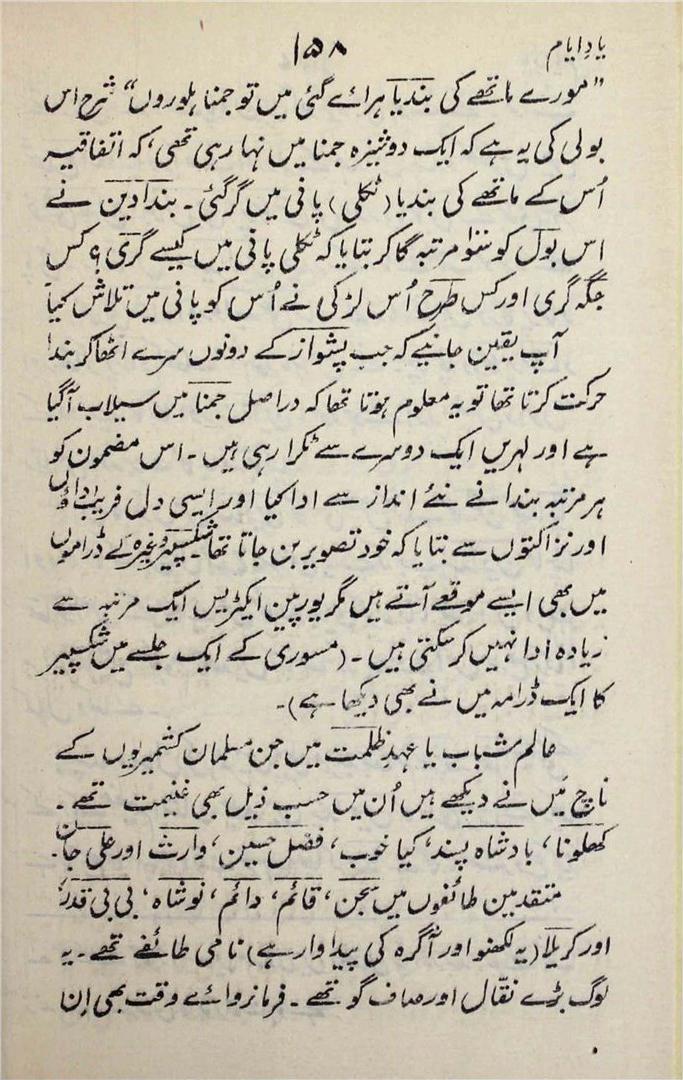 یادِ ایام
۱۵۸
”مورے ماتھے کی بندیا ہرائے گئی میں تو جمنا ہلوروں“ شرح اس
بولی کی یہ ہے کہ ایک دوشیزہ جمنا میں نہا رہی تھی، کہ اتفاقیہ
اُس کے ماتھے کی بندیا (ٹکلی) پانی میں گر گئی۔ بندا دین نے
اس بول کو سنؤ مرتبہ گا کر بتایا کہ ٹکلی پانی میں کیسے گری؟ کس
جگہ گری اور کس طرح اُس لڑکی نے اُس کو پانی میں تلاش کیا
آپ یقین جانیے کہ جب پشواز کے دونوں سرے اٹھا کر بندا
حرکت کرتا تھا تو یہ معلوم ہوتا تھا کہ دراصل جمنا میں سیلاب آگیا
ہے اور لہریں ایک دوسرے سے ٹکرا رہی ہیں۔ اس مضمون کو
ہر مرتبہ بندا نے نئے انداز سے ادا کیا اور ایسی دل فریب اداؤں
اور نزاکتوں سے بتایا کہ خود تصویر بن جاتا تھا شکسپیر وغیرہ کے ڈراموں
میں بھی ایسے موقعے آتے ہیں مگر یورپین ایکٹریس ایک مرتبہ سے
زیادہ ادا نہیں کر سکتی ہیں۔ (مسوری کے ایک جلسے میں شکسپیر
کا ایک ڈرامہ میں نے بھی دیکھا ہے)۔
عالمِ شباب یا عہدِ ظلمت میں جن مسلمان کشمیریوں کے
ناچ میں نے دیکھے ہیں اُن میں حسب ذیل بھی غنیمت تھے۔
کھلونا، بادشاہ پسند، کیا خوب، فضل حسین، وارث اور علی جان۔
متقدمین طائفوں میں سجن، قائم، دائم، نوشاہ، بی بی قدر،
اور کریلا (یہ لکھنؤ اور آگرہ کی پیداوار ہے) نامی طائفے تھے۔ یہ
لوگ بڑے نقّال اور صاف گو تھے۔ فرمانروائے وقت بھی اِن